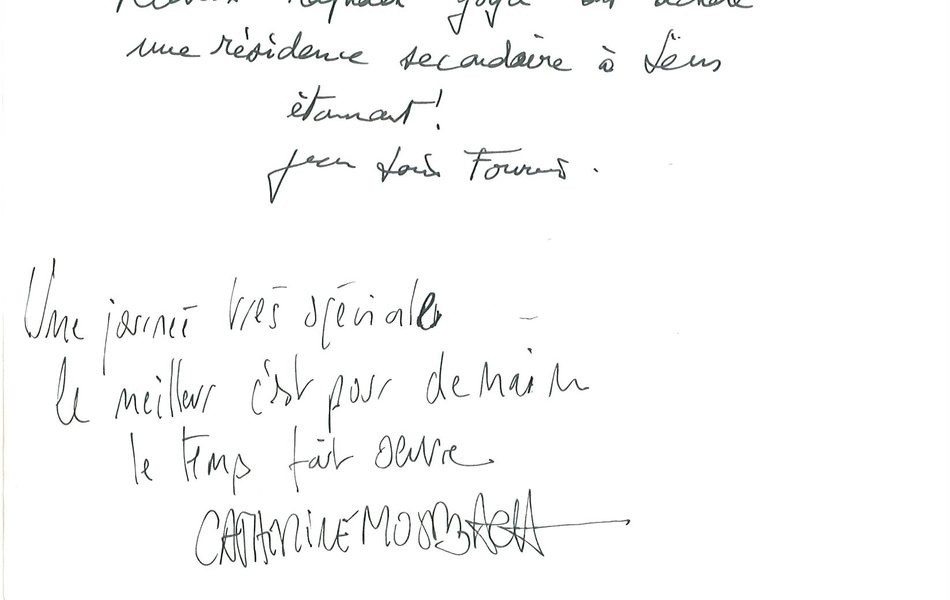 une résidence secondaire à Sens
étonnant!
Jean Louis Fournier.
Une journée très spéciale
le meilleur c'est pour demain
le temps fait oeuvre.
CATHERINE MOSBACH